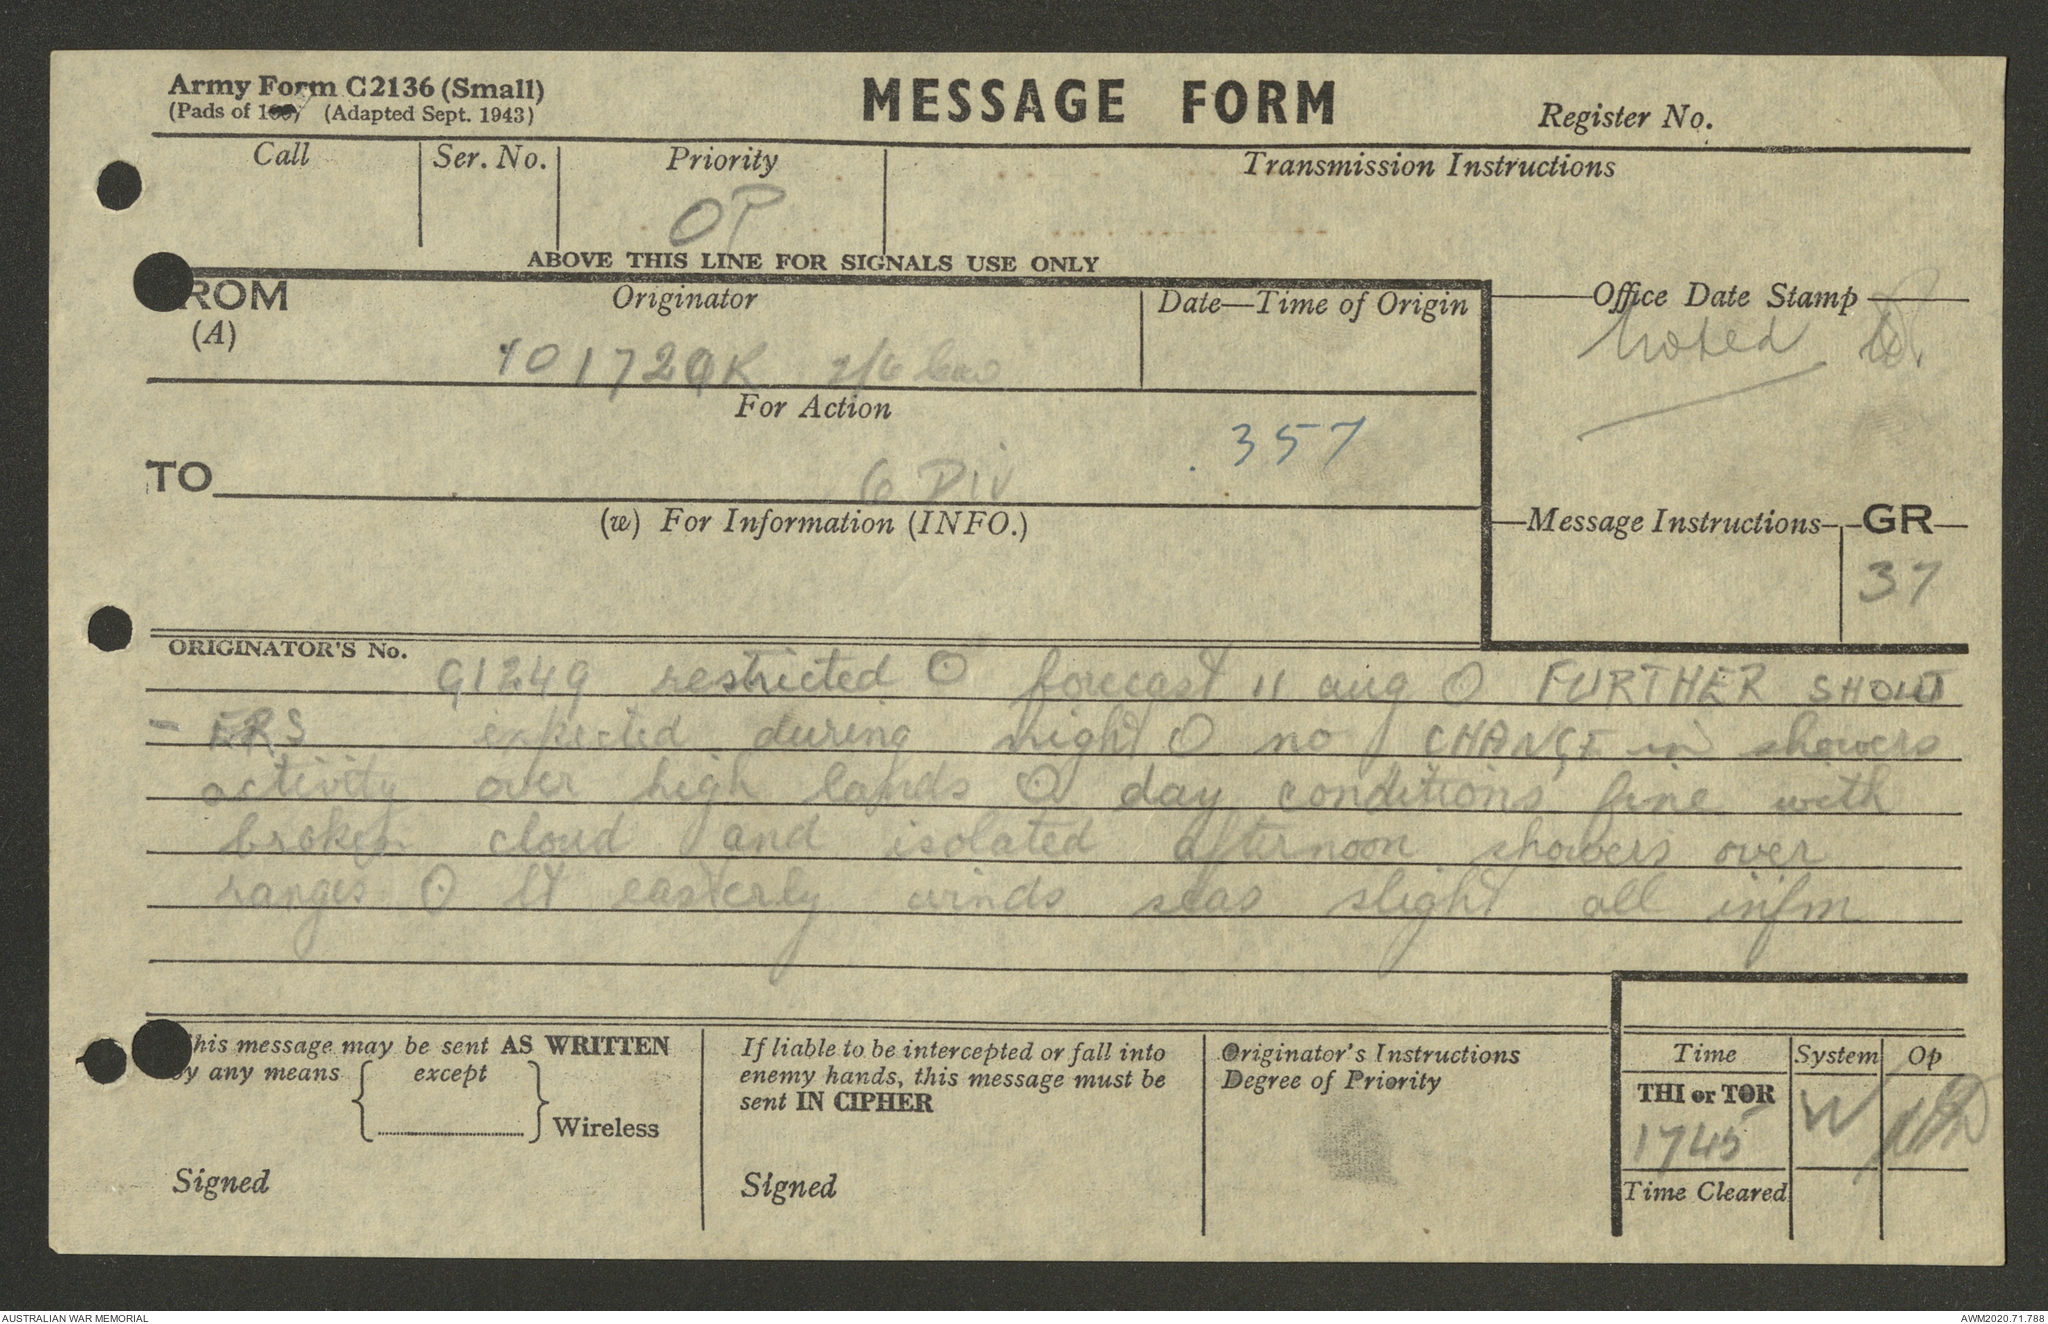 Army Form C2136 (Small)
MESSAGE FORM
(Pads of 100) (Adapted Sept. 1943)
Register No.
Call
Ser. No.
Priority
Transmission Instructions
OP
ABOVE THIS LINE FOR SIGNALS USE ONLY
ROM
(A)
Originator
Date—Time of Origin
Office Date Stamp
Noted
101720K 2/6
For Action
357
TO
6 Div
(w) For Information (INFO.)
Message Instructions
GR
37
ORIGINATOR'S No.
G1249 restricted O forecast 11 aug O FURTHER SHOW
- ERS expected during night O no CHANGE in showers
activity over high lands O day conditions fine with
broken cloud and isolated afternoon showers over
ranges O lt easterly winds seas slight all infm
his message may be sent AS WRITTEN
y any means except
Wireless
Signed
If liable to be intercepted or fall into
enemy hands, this message must be
sent IN CIPHER
Signed
Originator's Instructions
Degree of Priority
Time
System
Op
THI or TOR
1745
W
Time Cleared
AUSTRALIAN WAR MEMORIAL
AWM2020.71.788